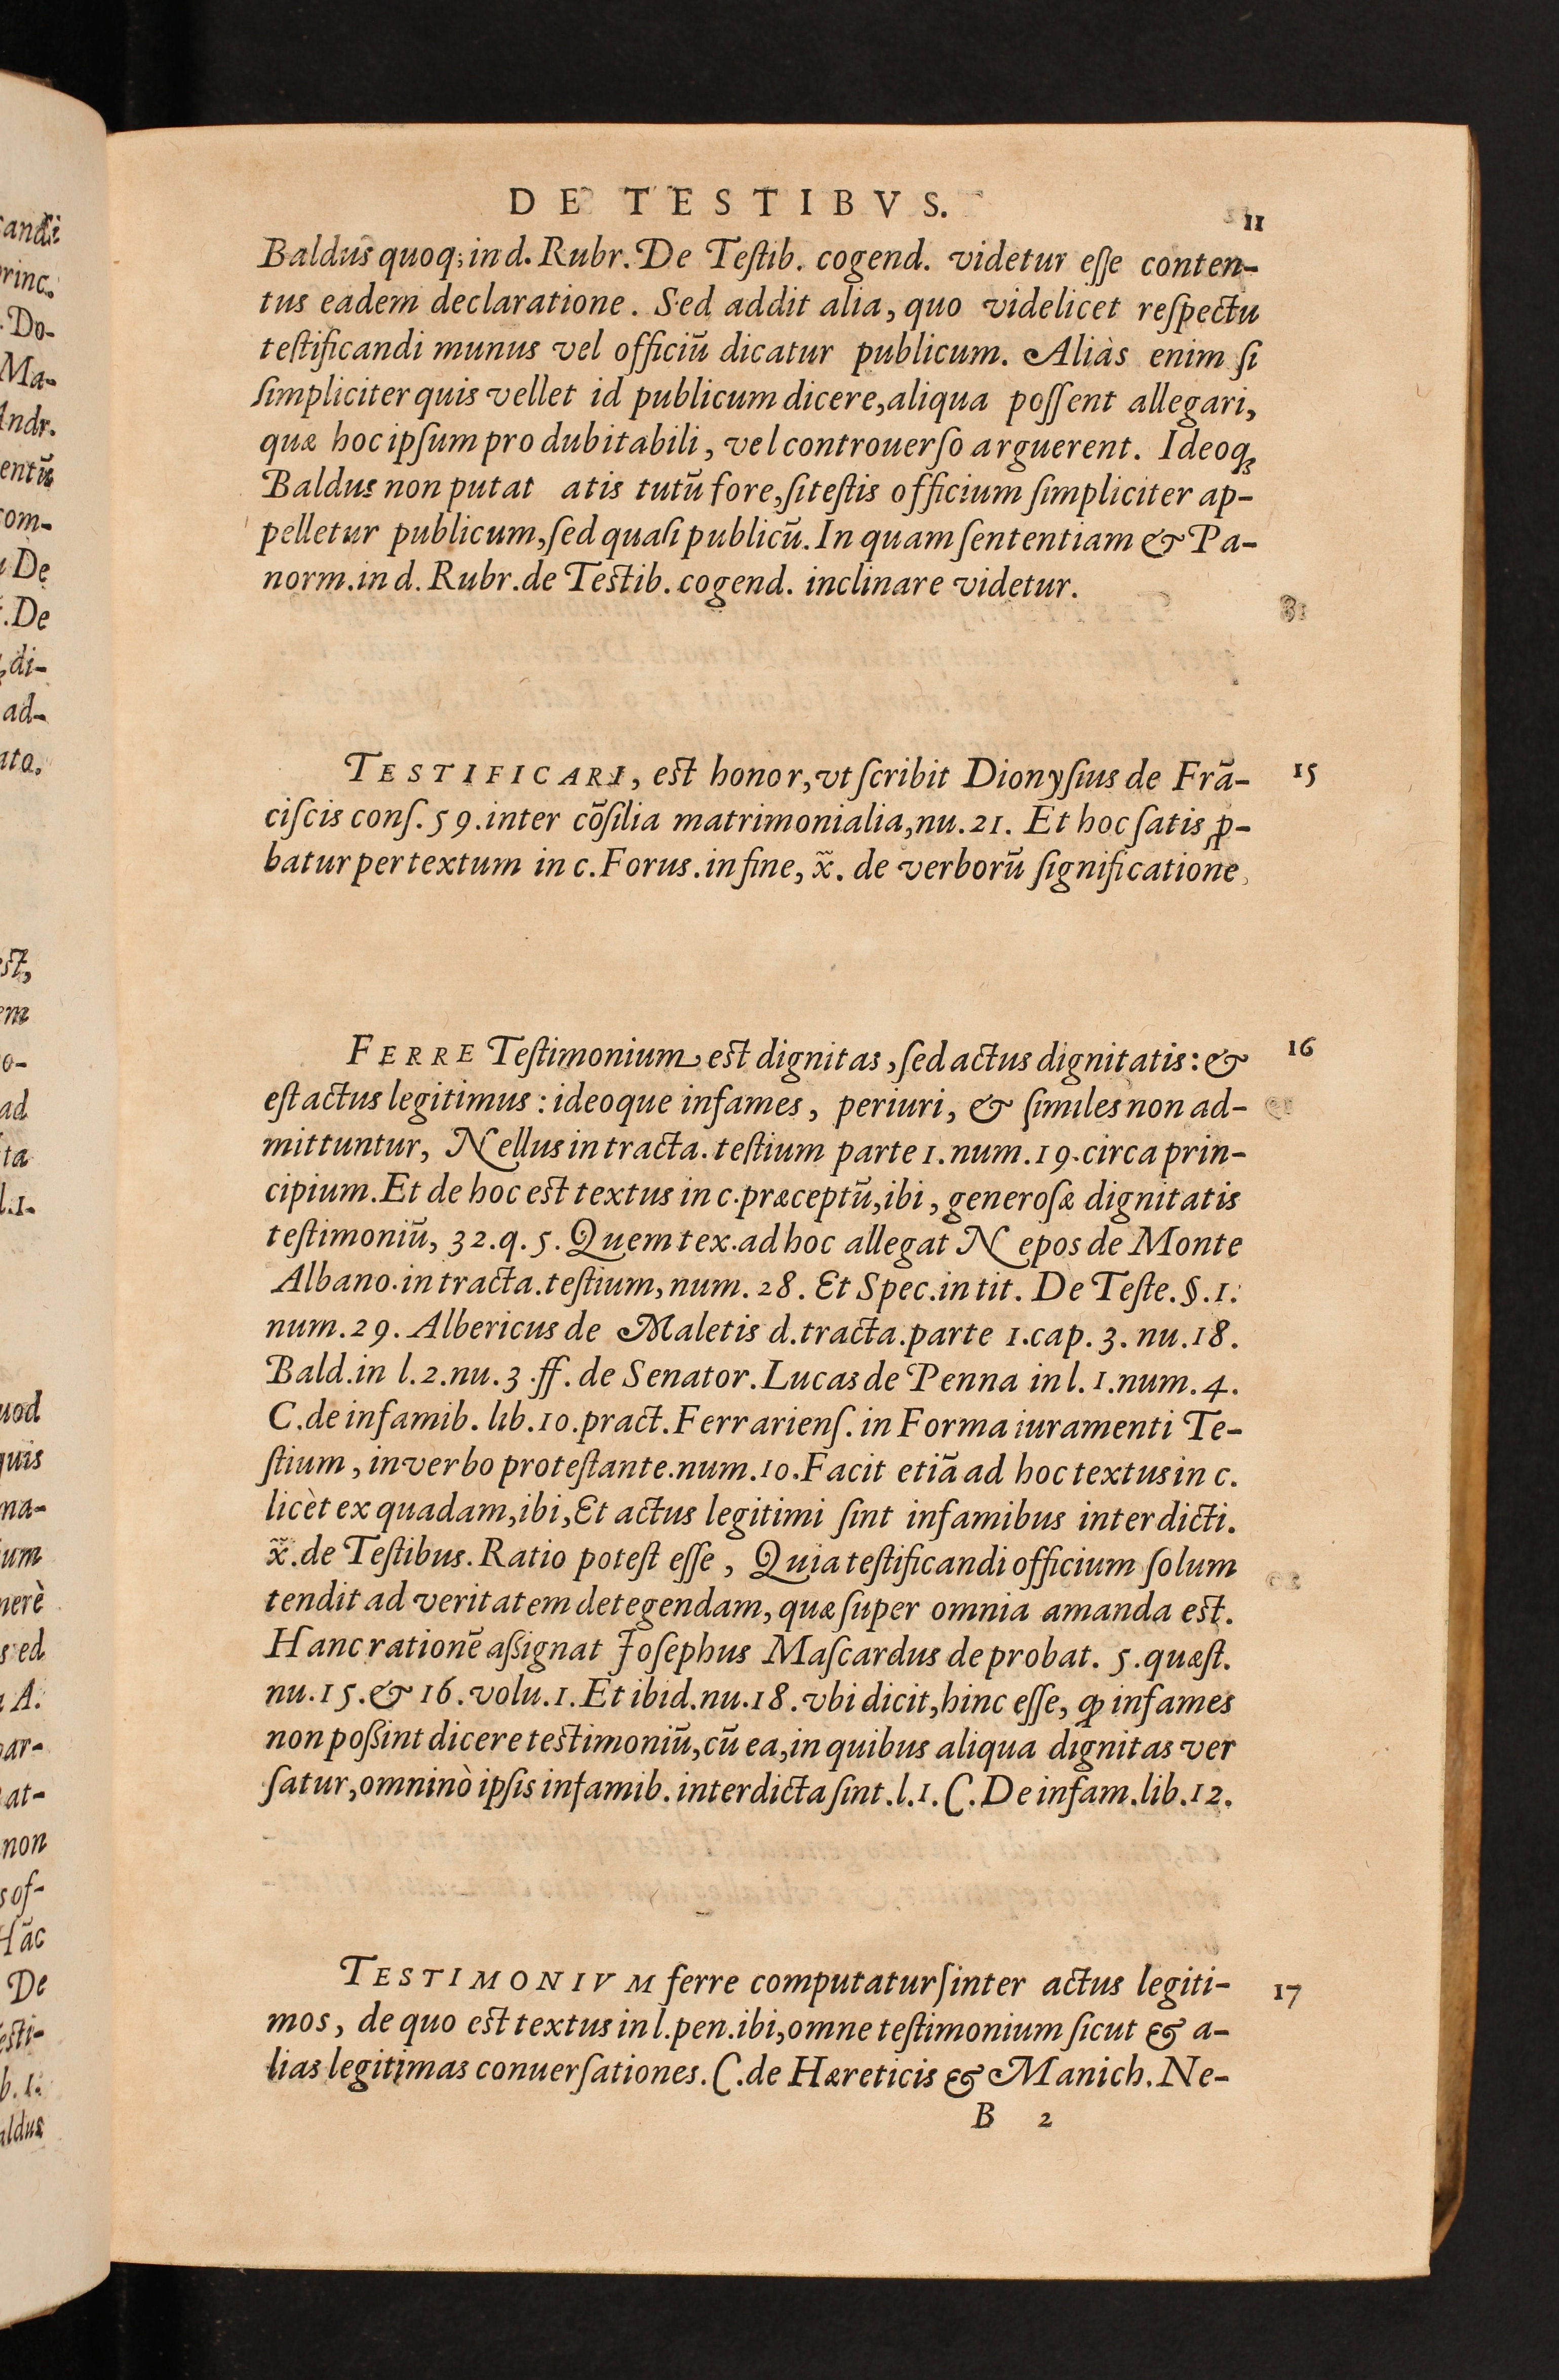 DE TESTIBVS.
11
Baldus quoq; in d. Rubr. De Teſtib. cogend. videtur eſſe conten-
tus eadem declaratione. Sed addit alia, quo videlicet reſpectu
teſtificandi munus vel officiũ dicatur publicum. Aliàs enim ſi
ſimpliciter quis vellet id publicum dicere, aliqua poſſent allegari,
quæ hoc ipſum pro dubitabili, vel controuerſo arguerent. Ideoq;
Baldus non putat atis tutũ fore, ſi teſtis officium ſimpliciter ap-
pelletur publicum, ſed quaſi publicũ. In quam ſententiam & Pa-
norm. in d. Rubr. de Teſtib. cogend. inclinare videtur.
TESTIFICARI, eſt honor, vt ſcribit Dionyſius de Frã-
15
ciſcis conſ. 59. inter cõſilia matrimonialia, nu. 21. Et hoc ſatis ꝓ-
batur per textum in c. Forus. in fine, x̃. de verborũ ſignificatione
FERRE Teſtimonium, eſt dignitas, ſed actus dignitatis: &
16
eſt actus legitimus: ideoque infames, periuri, & ſimiles non ad-
mittuntur, Nellus in tracta. teſtium parte 1. num. 19. circa prin-
cipium. Et de hoc eſt textus in c. præceptũ, ibi, generoſæ dignitatis
teſtimoniũ, 32. q. 5. Quem tex. ad hoc allegat Nepos de Monte
Albano. in tracta. teſtium, num. 28. Et Spec. in tit. De Teſte. §. 1.
num. 29. Albericus de Maletis d. tracta. parte 1. cap. 3. nu. 18.
Bald. in l. 2. nu. 3. ff. de Senator. Lucas de Penna in l. 1. num. 4.
C. de infamib. lib. 10. pract. Ferrarienſ. in Forma iuramenti Te-
ſtium, in verbo proteſtante. num. 10. Facit etiã ad hoc textus in c.
licèt ex quadam, ibi, Et actus legitimi ſint infamibus interdicti.
x̃. de Teſtibus. Ratio poteſt eſſe, Quia teſtificandi officium ſolum
tendit ad veritatem detegendam, quæ ſuper omnia amanda eſt.
Hanc rationẽ aßignat Joſephus Maſcardus de probat. 5. quæſt.
nu. 15. & 16. volu. 1. Et ibid. nu. 18. vbi dicit, hinc eſſe, ꝙ infames
non poßint dicere teſtimoniũ, cũ ea, in quibus aliqua dignitas ver
ſatur, omninò ipſis infamib. interdicta ſint. l. 1. C. De infam. lib. 12.
TESTIMONIVM ferre computatur ſinter actus legiti-
17
mos, de quo eſt textus in l. pen. ibi, omne teſtimonium ſicut & a-
lias legitimas conuerſationes. C. de Hæreticis & Manich. Ne-
B 2